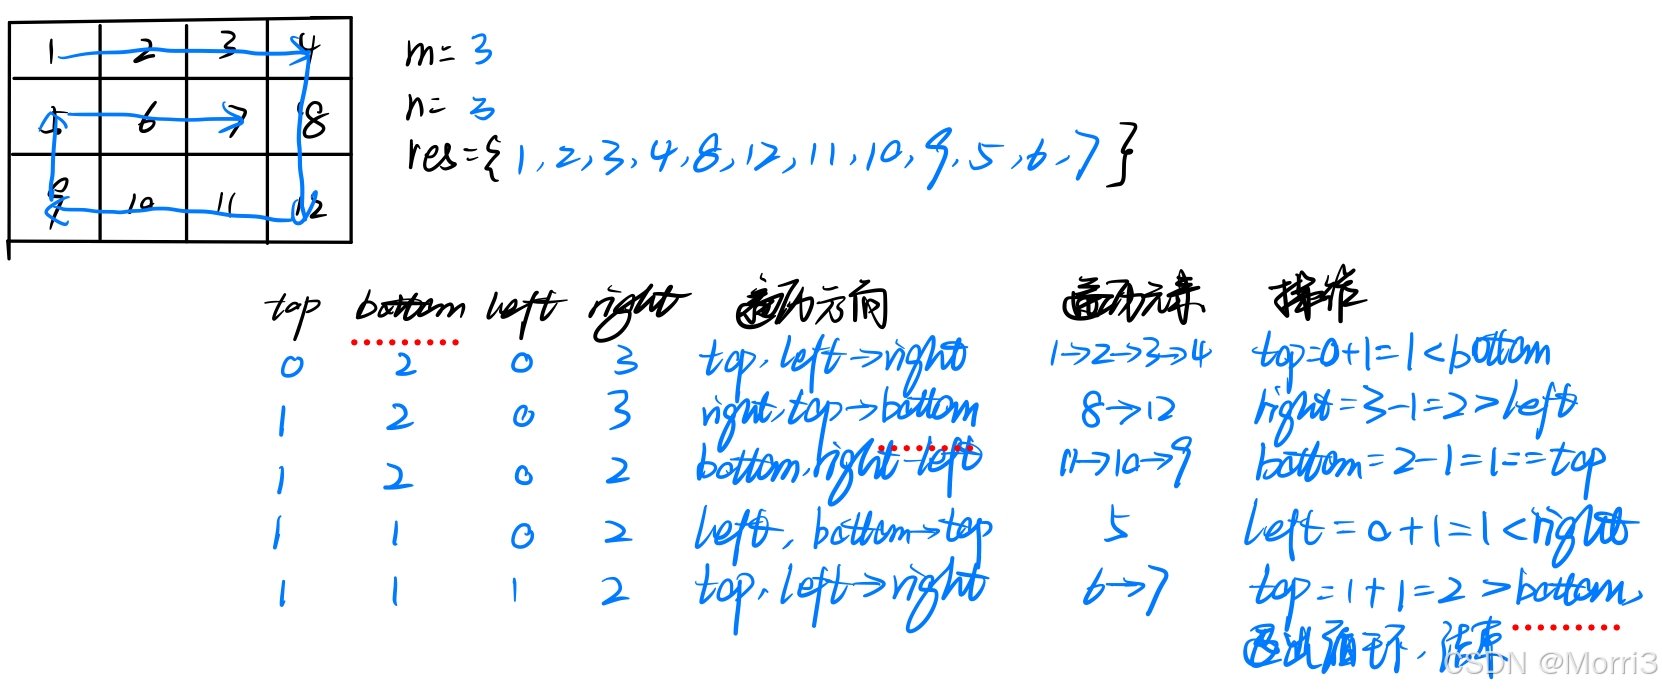 1 2 3 4
5 6 7 8
9 10 11 12
m= 3
n= 3
res={1,2,3,4,8,12,11,10,9,5,6,7}
top bottom left right 方向 元素 操作
0 2 0 3 top,left→right 1→2→3→4 top=0+1=1<bottom
1 2 0 3 right,top→bottom 8→12 right=3-1=2>left
1 2 0 2 bottom,right→left 11→10→9 bottom=2-1=1==top
1 1 0 2 left,bottom→top 5 left=0+1=1<right
1 1 1 2 top,left→right 6→7 top=1+1=2>bottom,
退出循环,结束
CSDN @Morri3